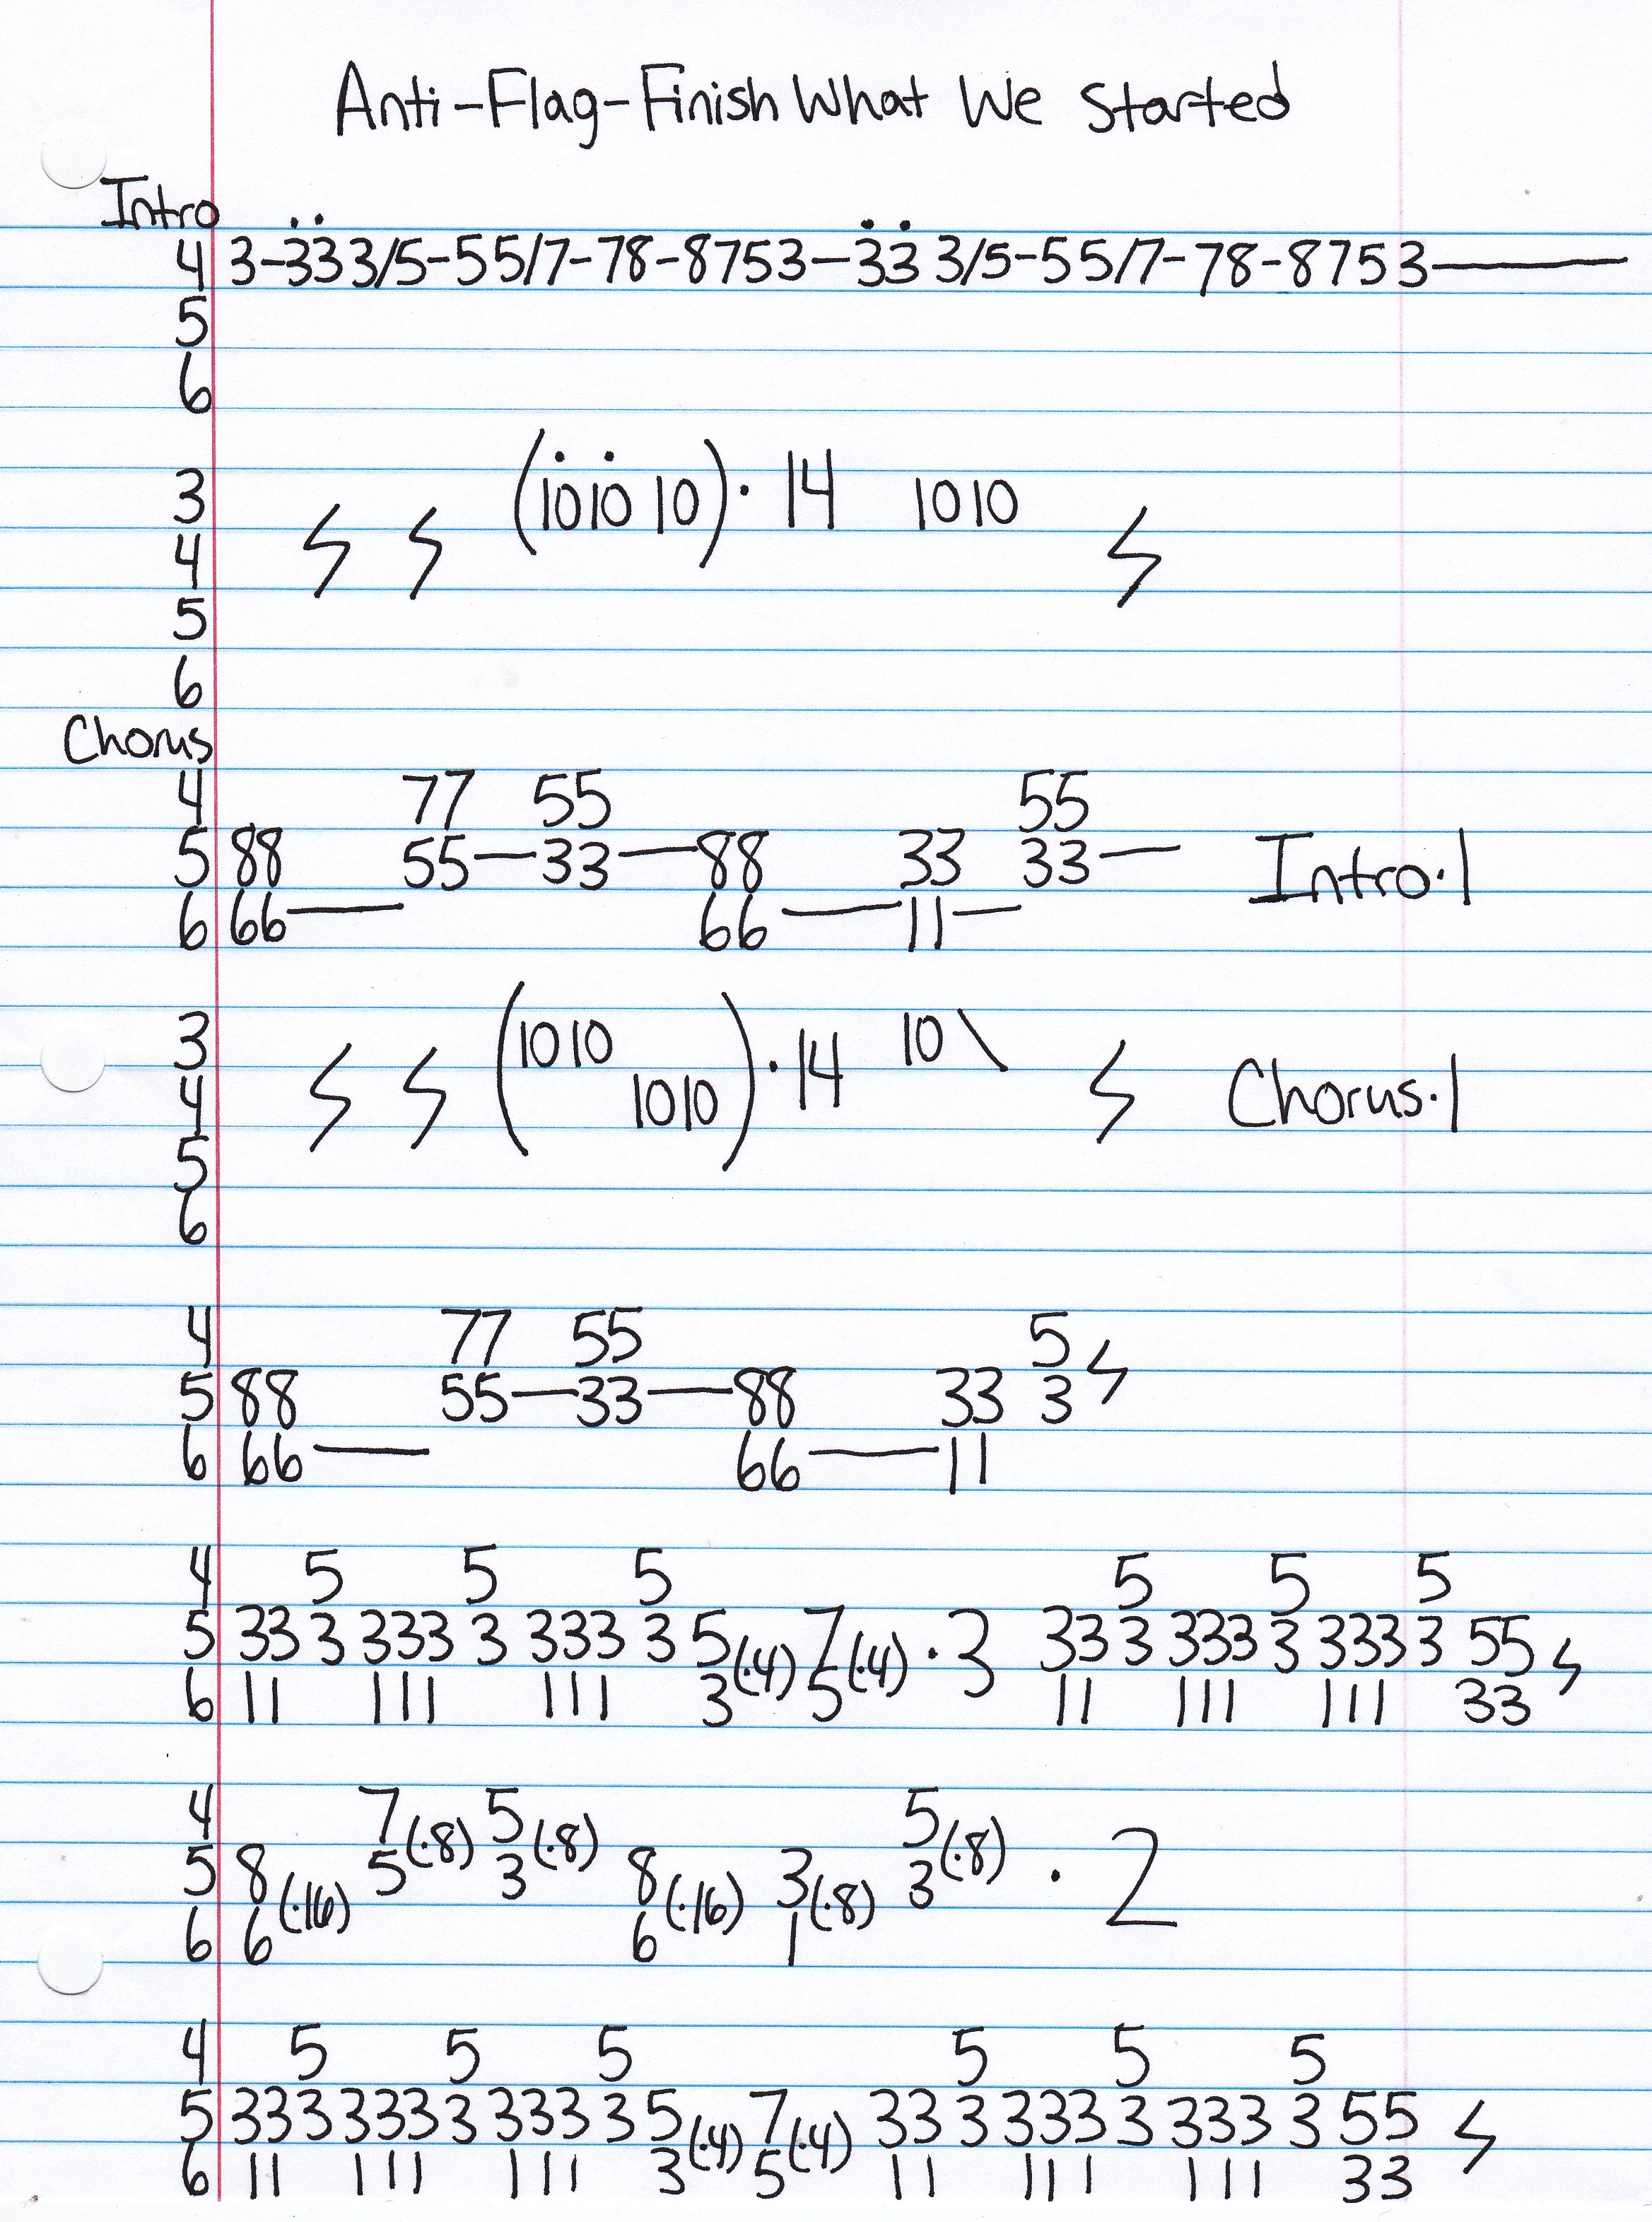 Anti-Flag-Finish What We Started
Intro
4 3-333/5-55/7-78-8753—33 3/5-55/7-78-8753—
5
6
3 (1010 10)·14 1010
4
5
6
Chorus
4 77 55 55
5 88 55—33—88 33 33— Intro·1
6 66— 66—11—
3 (1010 ·14 10\
4 1010) Chorus·1
5
6
4 77 55 5
5 88 55—33—88 33 3
6 66— 66—11
4 5 5 5 5 5 5
5 33 3 333 3 333 3 5(·4) 7(·4) ·3 33 3 333 3 333 3 55
6 11 111 111 3 5 11 111 111 33
4 7(·8) 5(·8) 5(·8)
5 8(·16) 5 3 8(·16) 3(·8) 3 · 2
6 6 6 1
4 5 5 5 5 5 5
5 33 3 333 3 333 3 5(·4) 7(·4) 33 3 333 3 333 3 55
6 11 111 111 3 5 11 111 111 33